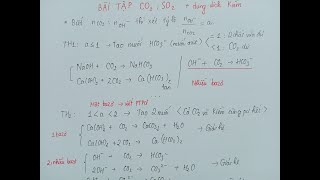 BÀI TẬP CO₂; SO₂ + dung dịch Kiềm
+ Biết nCO₂; nOH⁻ thì xét tỷ lệ nOH⁻/nCO₂ = a
TH1: a ≤ 1 → Tạo muối HCO₃⁻ (muối axit) { = 1: 
< 1: CO₂ dư
NaOH + CO₂ → NaHCO₃
Ca(OH)₂ + 2CO₂ → Ca(HCO₃)₂
OH⁻ + CO₂ → HCO₃⁻
Nhiều bazơ
Một bazơ → đặt
TH2: 1 < a < 2 → Tạo 2 muối (CO₂ và Kiềm cùng hết)
1 bazơ
Ca(OH)₂ + CO₂ → CaCO₃ + H₂O → Giải hệ
Ca(OH)₂ + 2CO₂ → Ca(HCO₃)₂
2: nhiều bazơ
OH⁻ + CO₂ → HCO₃⁻
2OH⁻ + CO₂ → CO₃²⁻ + H₂O → Giải hệ